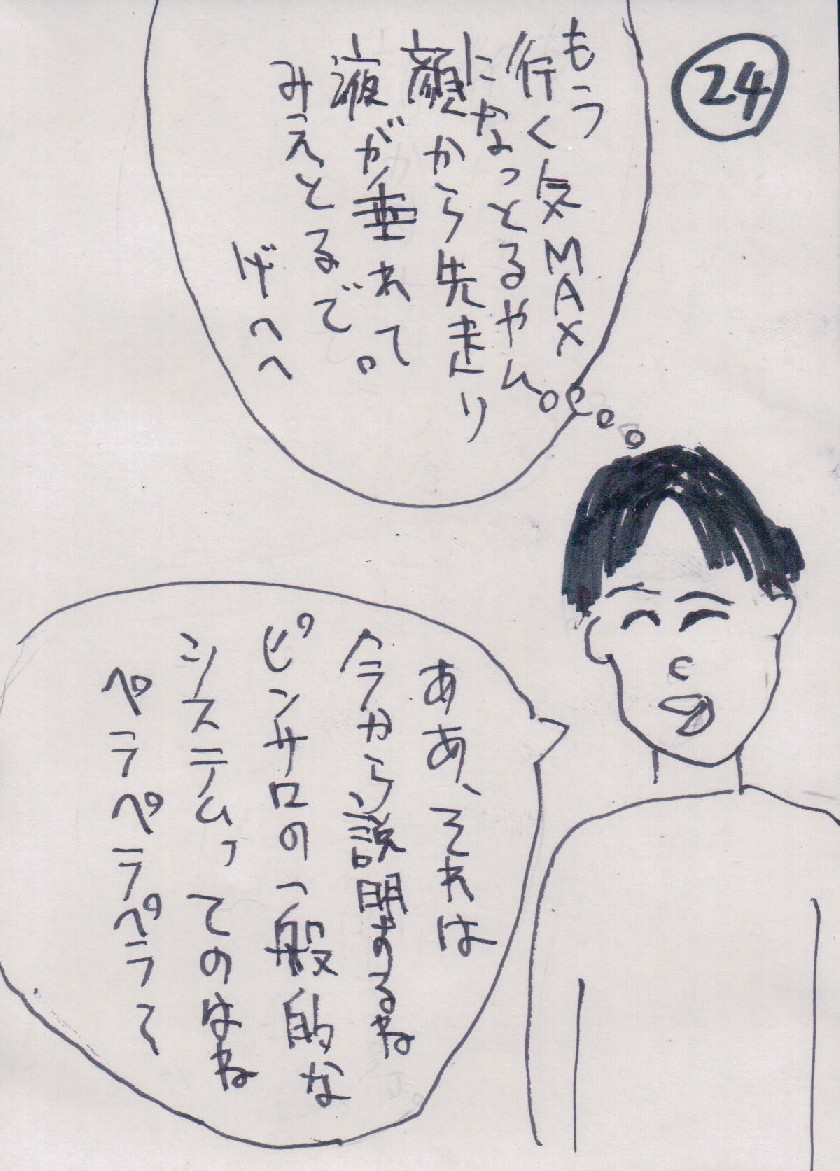 24
もう
行く気MAX
になっとるやん。
顔から先走り
液が垂れて
みえとるで。
ゲヘヘ
ああ、それは
今から説明するね
ピンサロの一般的な
システムってのはね
ペラペラペラペラ